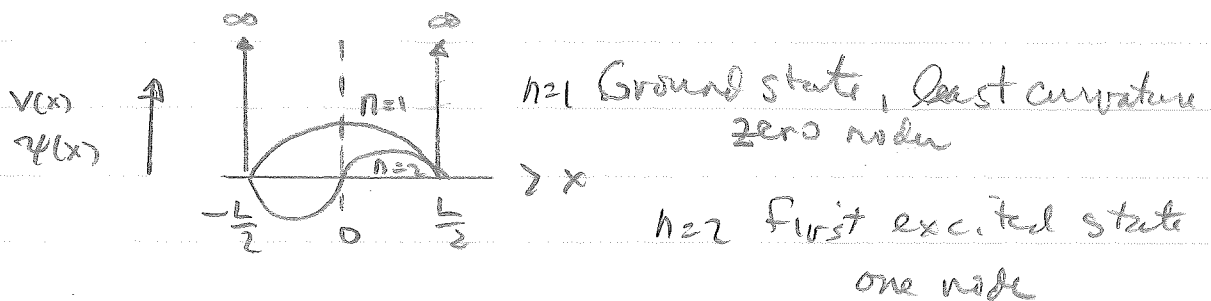 ∞ ∞
V(x)
ψ(x)
n=1
n=2
-L/2 0 L/2
> x
n=1 Ground state, least curvature
zero nodes
n=2 First excited state
one node